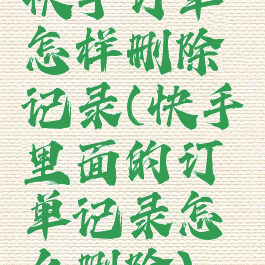 快手订单
怎样删除
记录(快手
里面的订
单记录怎
么删除)